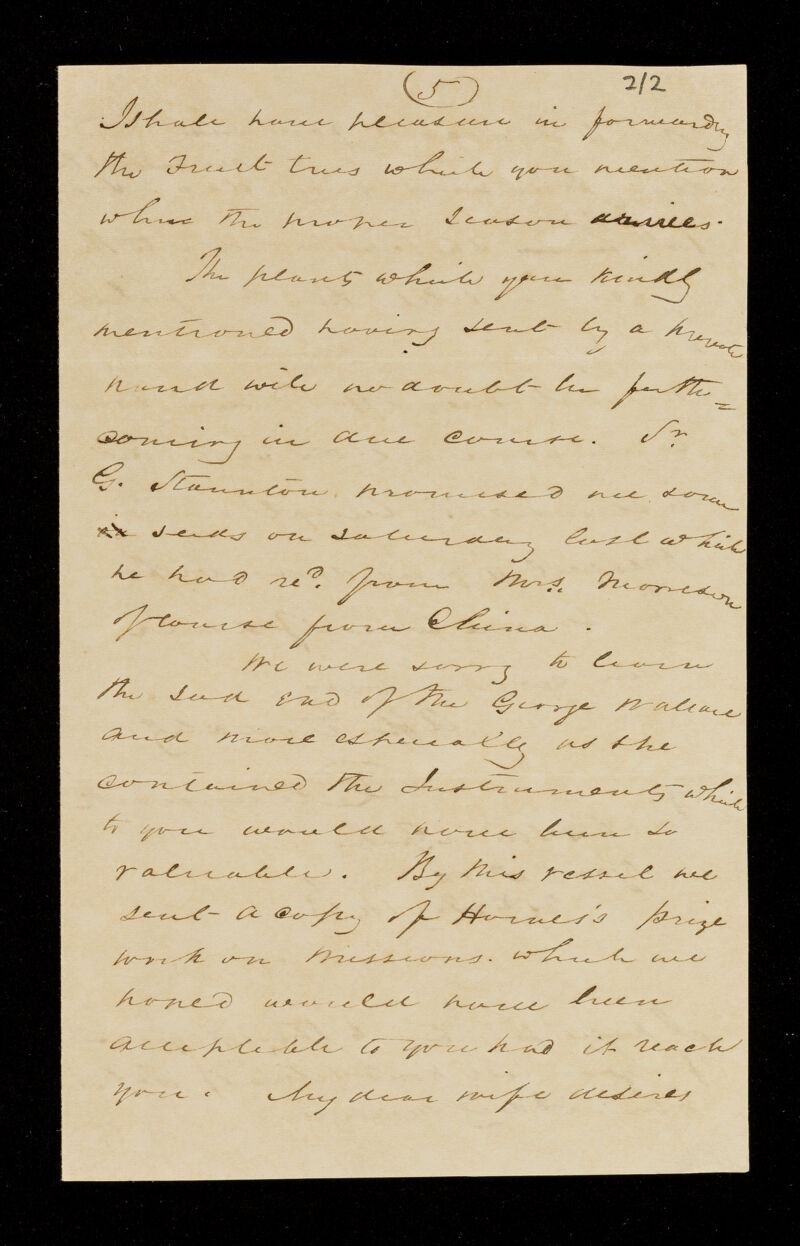 (5) 2/2
I shall have pleasure in forwarding
the Fruit trees which you mention
when the proper season arrives.
The plants which you kindly
mentioned having sent by a private
hand will no doubt be forth=
coming in due course. Sr.
G. Staunton promised me some
seeds on Saturday last which
he had red. from Mrs. Morrison
of course from China.
We were sorry to learn
the sad end of the George Wallace
and more especially as she
contained the Instruments which
to you would have been so
valuable. By this vessel we
sent a copy of Hornes's prize
work on Missions. which we
hoped would have been
acceptable to you had it reach
you. My dear wife desires